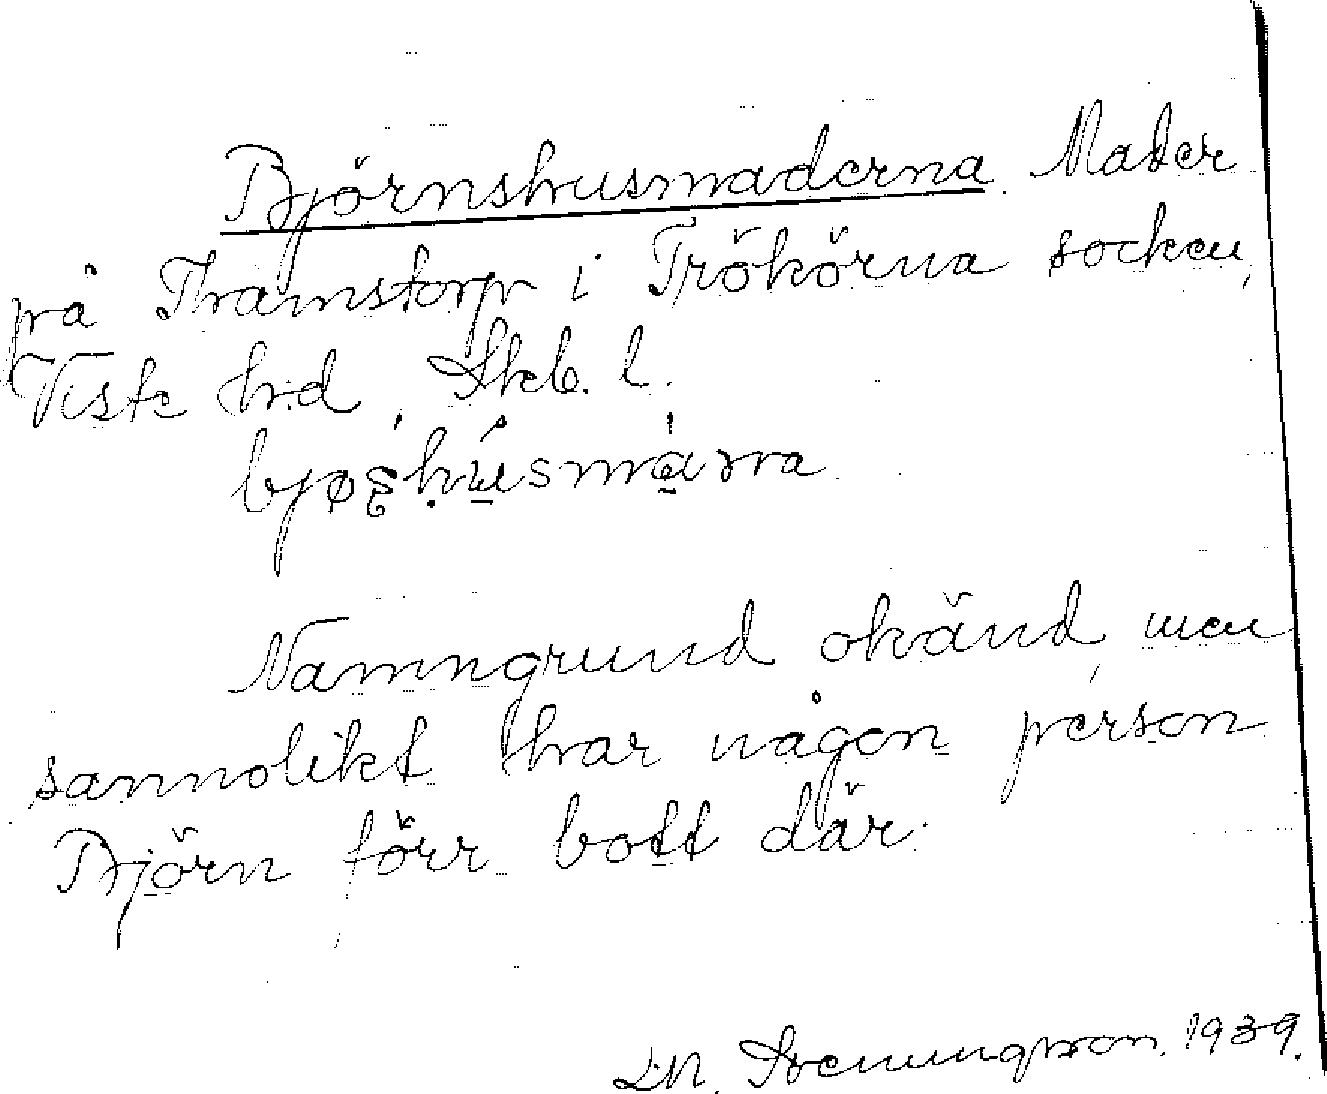 Björnshusmaderna. Mader
på Thamstorp i Trökörna socken,
Viste hd, Skb. l.
Namngrund okänd, men
sannolikt har någon person
Björn förr bott där.
Svenungsson. 1939.